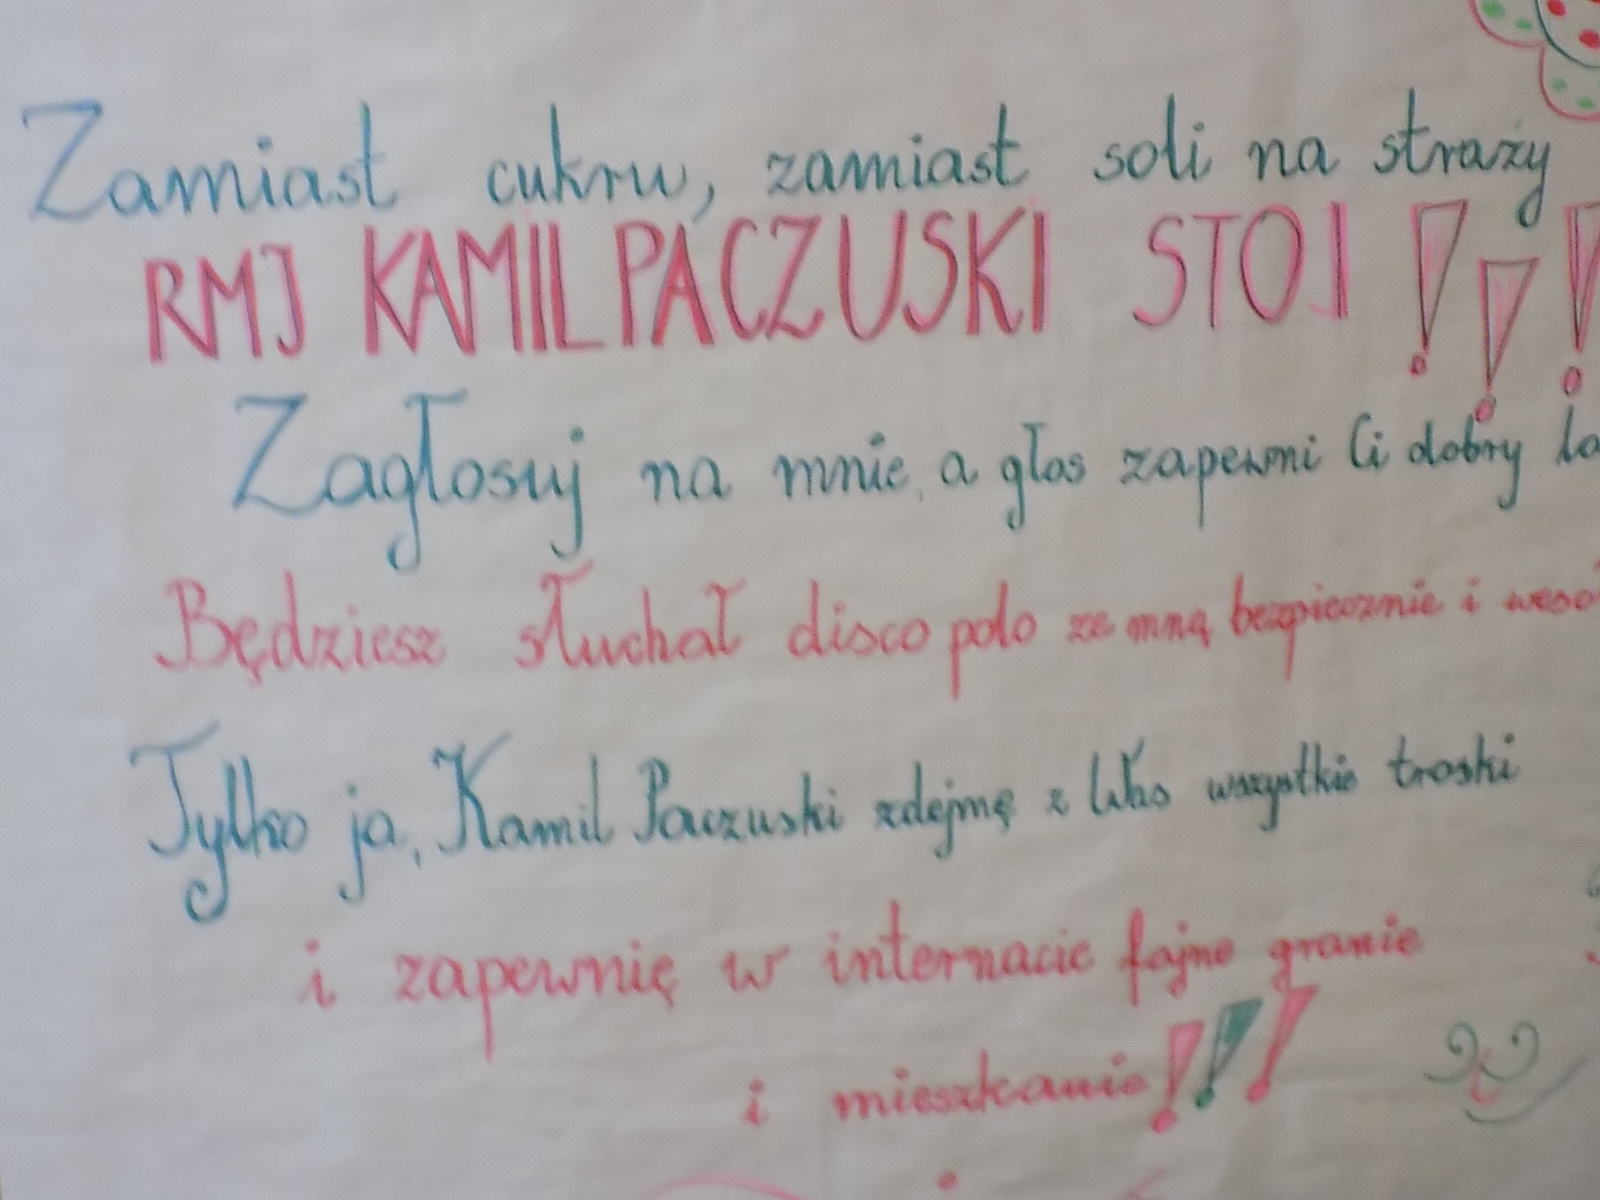 Zamiast cukru, zamiast soli na straży
RMJ KAMIL PACZUSKI STOI !!!
Zagłosuj na mnie, a głos zapewni Ci dobry lo
Będziesz słuchał disco polo ze mną bezpiecznie i weso
Tylko ja, Kamil Paczuski zdejmę z Was wszystkie troski
i zapewnię w internacie fajne granie
i mieszkanie !!!